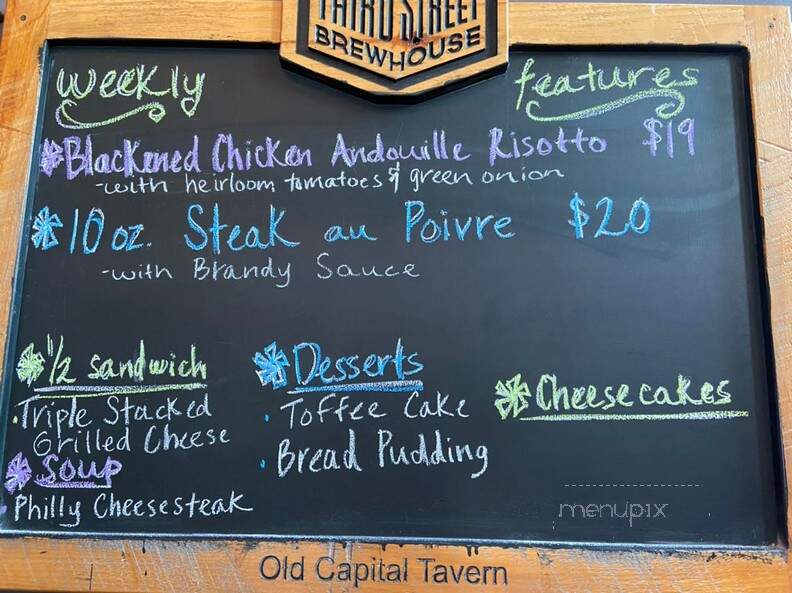 THIRD STREET
BREWHOUSE
Weekly features
Blackened Chicken Andouille Risotto $19
-with heirloom tomatoes & green onion
10 oz. Steak au Poivre $20
-with Brandy Sauce
1/2 sandwich
. Triple Stacked
Grilled Cheese
Soup
. Philly Cheesesteak
Desserts
. Toffee Cake
. Bread Pudding
Cheesecakes
menupix
Old Capital Tavern